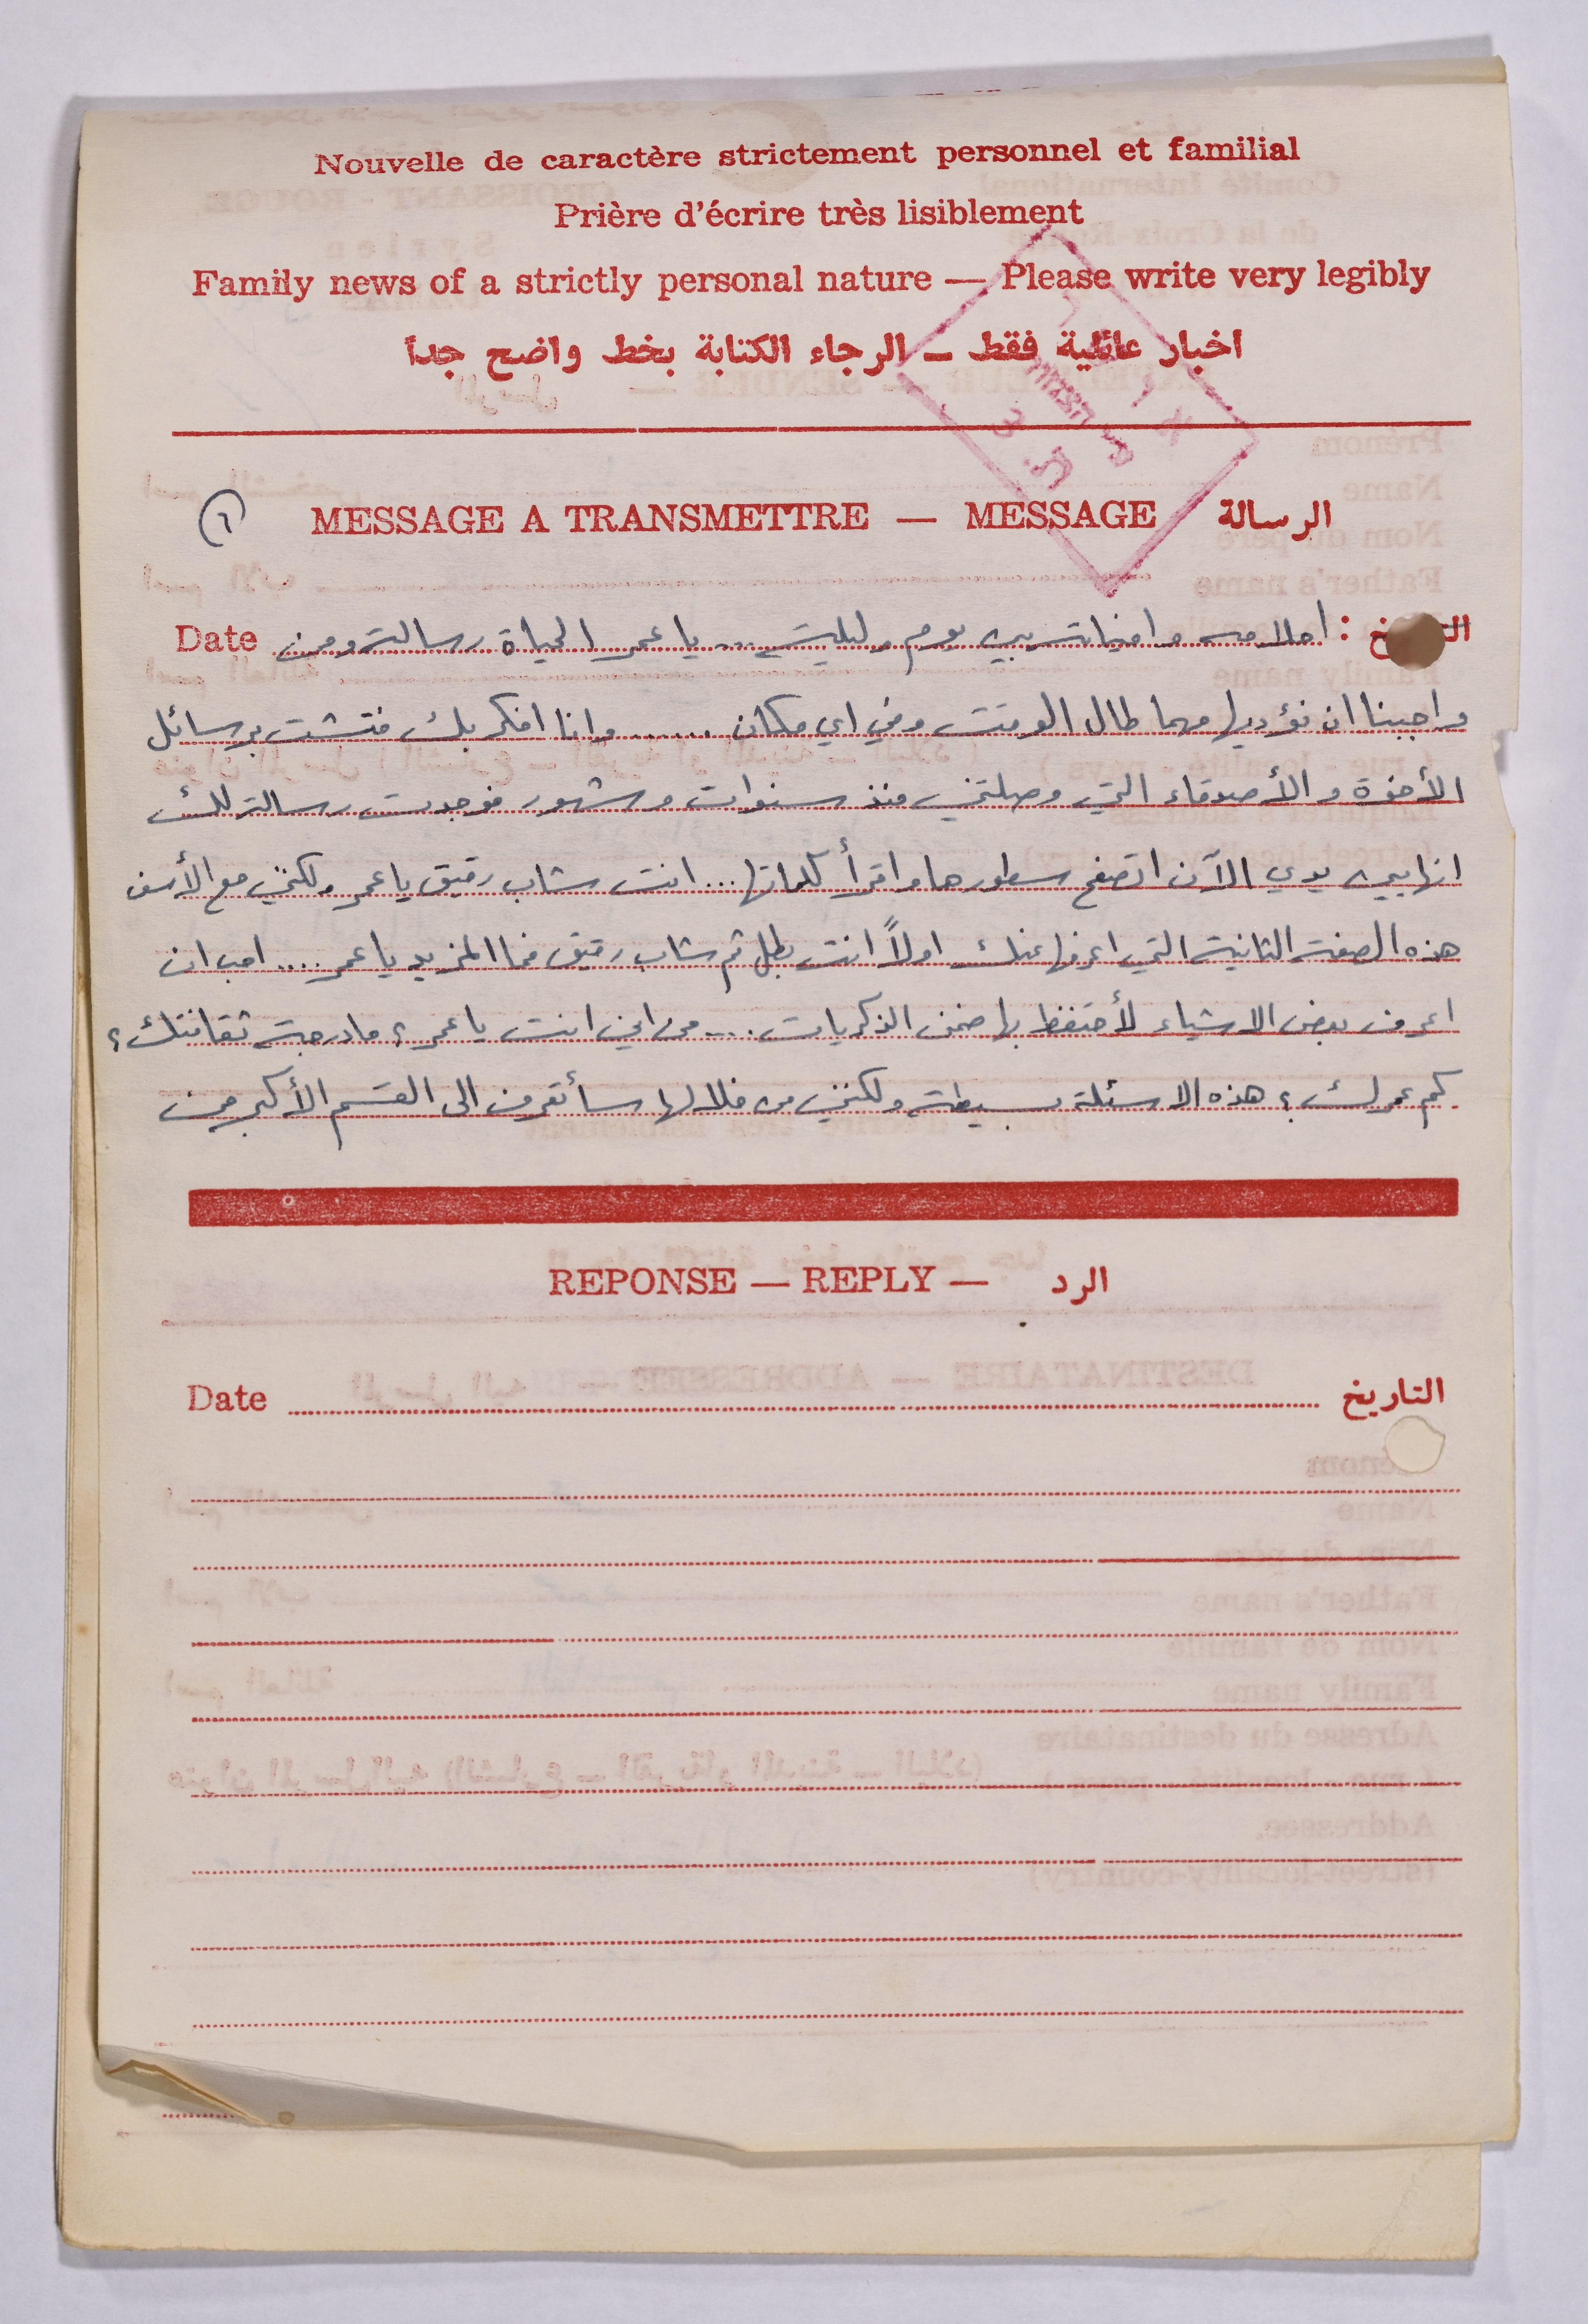 Nouvelle de caractère strictement personnel et familial
Prière d'écrire très lisiblement
Family news of a strictly personal nature — Please write very legibly
اخبار عائلية فقط — الرجاء الكتابة بخط واضح جدا
MESSAGE A TRANSMETTRE — MESSAGE الرسالة
Date : احلامه وامنياته بين يوم وليلة .... يا عمر الحياة رسالة ومن
واجبنا ان نؤديها مهما طال الوقت وفي اي مكان ...... وانا افكر بك فتشت برسائل
الأخوة والأصدقاء التي وصلتني منذ سنوات وشهور فوجدت رسالة لك
انها بين يدي الآن اتصفح سطورها واقرأ كلماتها... انت شاب رقيق يا عمر ولكني مع الأسف
هذه الصفة الثانية التي اعرفها عنك اولاً انت بطل ثم شاب رقيق فما المزيد يا عمر .... احب ان
اعرف بعض الاشياء لأحتفظ بها ضمن الذكريات .... من اين انت يا عمر ؟ ما درجة ثقافتك ؟
كم عمرك ؟ هذه الاسئلة بسيطة ولكنني من خلالها سأتعرف الى القسم الأكبر من
REPONSE — REPLY — الرد
Date التاريخ